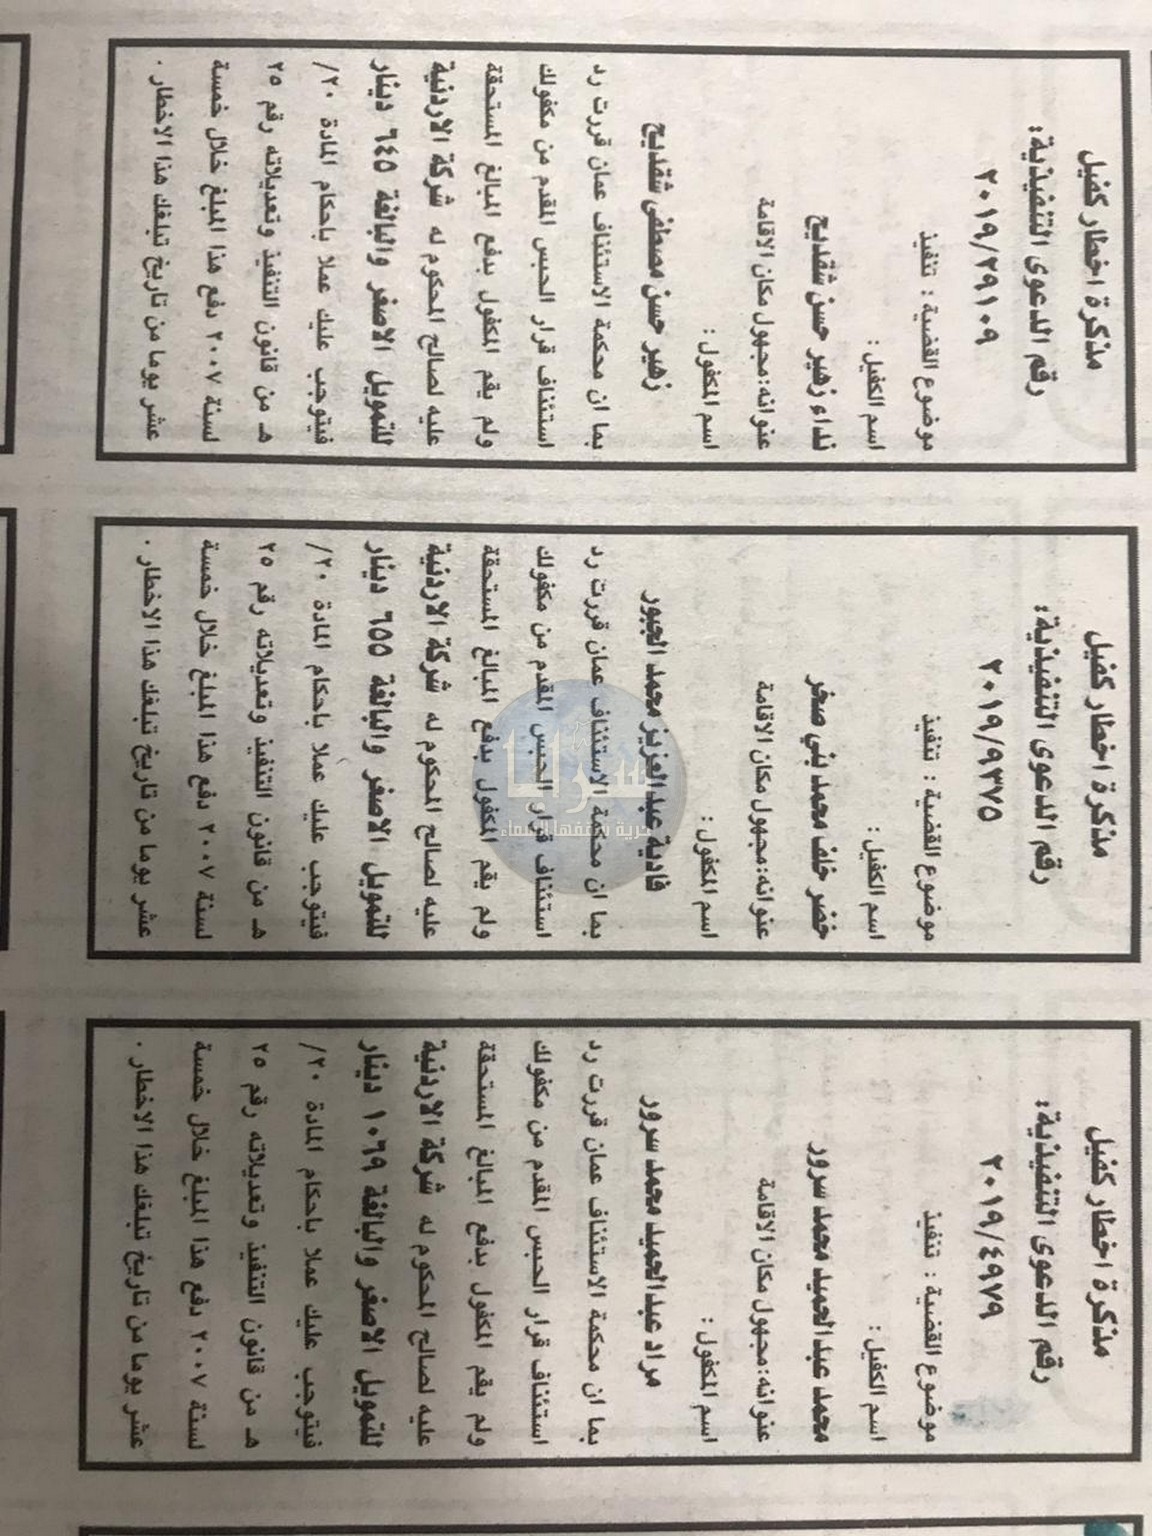 مذكرة اخطار كفيل
رقم الدعوى التنفيذية:
٢٠١٩/٢٩١٠٩
موضوع القضية : تنفيذ
اسم الكفيل :
نداء زهير حسن شقديح
عنوانه:مجهول مكان الاقامة
اسم المكفول :
زهير حسن مصطفى شقديح
بما ان محكمة الاستئناف عمان قررت رد
استئناف قرار الحبس المقدم من مكفولك
ولم يقم المكفول بدفع المبالغ المستحقة
عليه لصالح المحكوم له شركة الاردنية
للتمويل الاصغر والبالغة ٦٤٥ دينار
فيتوجب عليك عملا باحكام المادة ٢٠/
هـ من قانون التنفيذ وتعديلاته رقم ٢٥
لسنة ٢٠٠٧ دفع هذا المبلغ خلال خمسة
عشر يوما من تاريخ تبلغك هذا الاخطار .
مذكرة اخطار كفيل
رقم الدعوى التنفيذية:
٢٠١٩/٩٣٧٥
موضوع القضية : تنفيذ
اسم الكفيل :
خضر خلف محمد بني صخر
عنوانه:مجهول مكان الاقامة
اسم المكفول :
فادية عبدالعزيز محمد الجبور
بما ان محكمة الاستئناف عمان قررت رد
استئناف قرار الحبس المقدم من مكفولك
ولم يقم المكفول بدفع المبالغ المستحقة
عليه لصالح المحكوم له شركة الاردنية
للتمويل الاصغر والبالغة ٦٥٥ دينار
فيتوجب عليك عملا باحكام المادة ٢٠/
هـ من قانون التنفيذ وتعديلاته رقم ٢٥
لسنة ٢٠٠٧ دفع هذا المبلغ خلال خمسة
عشر يوما من تاريخ تبلغك هذا الاخطار .
مذكرة اخطار كفيل
رقم الدعوى التنفيذية:
٢٠١٩/٤٩٧٩
موضوع القضية : تنفيذ
اسم الكفيل :
محمد عبدالحميد محمد سرور
عنوانه:مجهول مكان الاقامة
اسم المكفول :
مراد عبدالحميد محمد سرور
بما ان محكمة الاستئناف عمان قررت رد
استئناف قرار الحبس المقدم من مكفولك
ولم يقم المكفول بدفع المبالغ المستحقة
عليه لصالح المحكوم له شركة الاردنية
للتمويل الاصغر والبالغة ١٠٦٩ دينار
فيتوجب عليك عملا باحكام المادة ٢٠/
هـ من قانون التنفيذ وتعديلاته رقم ٢٥
لسنة ٢٠٠٧ دفع هذا المبلغ خلال خمسة
عشر يوما من تاريخ تبلغك هذا الاخطار .
سرايا
حرية سقفها السماء